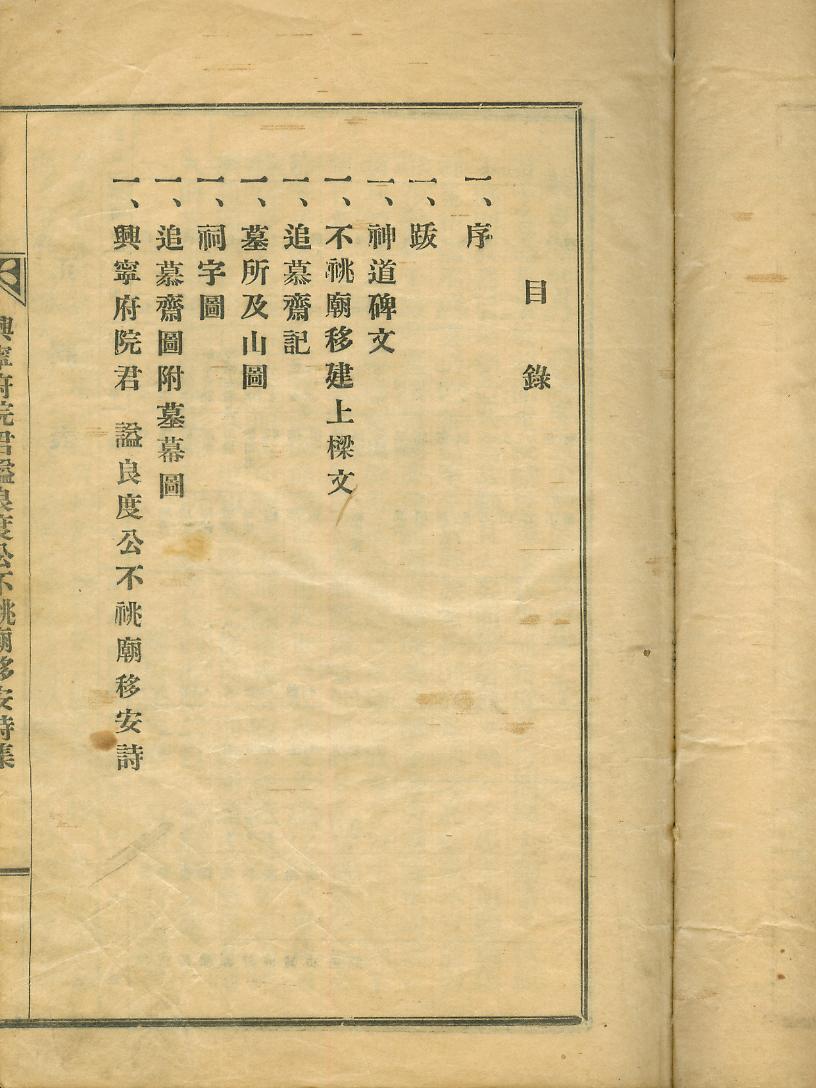 目錄
一、序
一、跋
一、神道碑文
一、不祧廟移建上樑文
一、追慕齋記
一、墓所及山圖
一、祠宇圖
一、追慕齋圖附墓幕圖
一、興寧府院君 謚良度公不祧廟移安詩
興寧府院君謚良度公不祧廟移安詩集